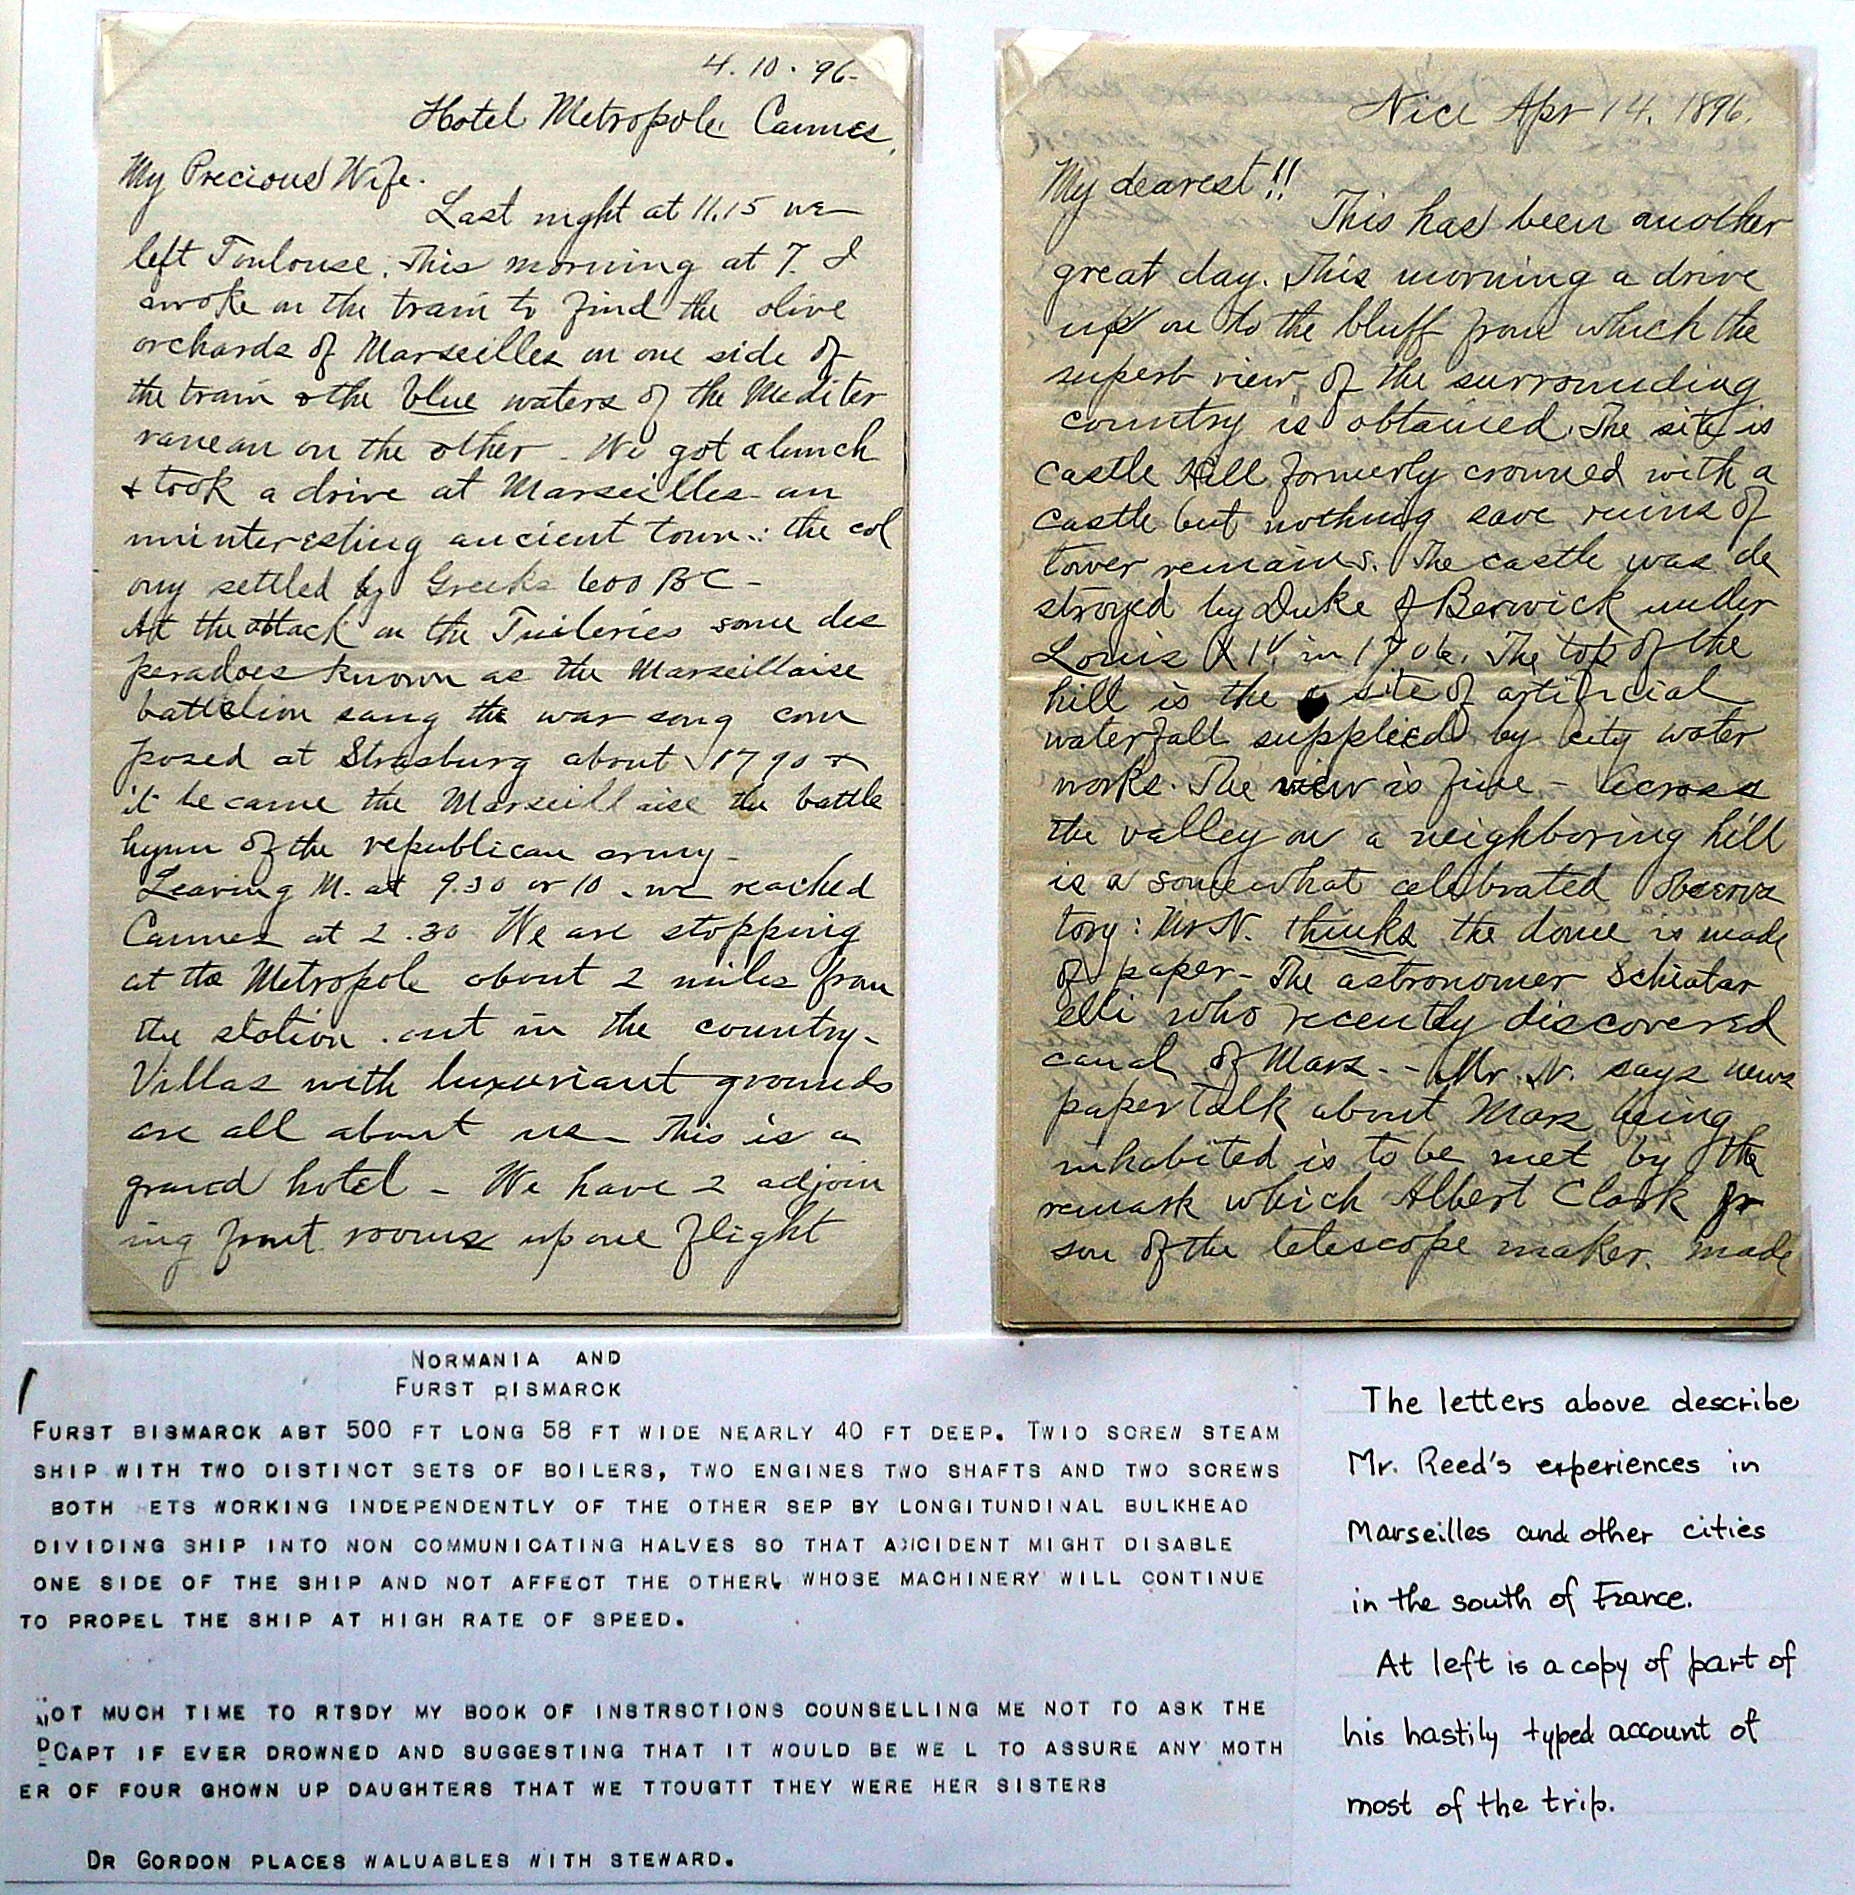 4.10.'96-
Hotel Metropole. Cannes,
My Precious Wife.
Last night at 11.15 we
left Toulouse. This morning at 7. I
awoke on the train to find the olive
orchards of Marseilles on one side of
the train & the blue waters of the Mediter
ranean on the other - We got a lunch
& took a drive at Marseilles - an
uninteresting ancient town: the col
ony settled by Greeks 600 BC -
At the attack on the Tuileries some des
peradoes known as the Marseillaise
battelion sang the war song com
posed at Strasburg about 1790 &
it became the Marseillaise the battle
hymn of the republican army -
Leaving M. at 9.30 or 10 - we reached
Cannes at 2.30 We are stopping
at the Metropole about 2 miles from
the station. out in the country -
Villas with luxuriant grounds
are all about us - This is a
grand hotel - We have 2 adjoin
ing front rooms up one flight
Nice Apr 14. 1896.
My dearest!!
This has been another
great day. This morning a drive
up on to the bluff from which the
superb view of the surrounding
country is obtained. The site is
Castle Hill formerly crowned with a
castle but nothing save ruins of
tower remains. The castle was de
stroyed by Duke of Berwick under
Louis XIV in 1706. The top of the
hill is the site of artificial
waterfall supplied by city water
works. The view is fine - Across
the valley on a neighboring hill
is a somewhat celebrated observa
tory: Mr N. thinks the dome is made
of paper - The astronomer Schiapar
elli who recently discovered
canal of Mars. - - Mr. N. says news
paper talk about Mars being
inhabited is to be met by the
remark which Albert Clark Jr
son of the telescope maker. made
NORMANIA AND
FURST BISMARCK
FURST BISMARCK ABT 500 FT LONG 58 FT WIDE NEARLY 40 FT DEEP. TWIO SCREW STEAM
SHIP WITH TWO DISTINCT SETS OF BOILERS, TWO ENGINES TWO SHAFTS AND TWO SCREWS
BOTH ETS WORKING INDEPENDENTLY OF THE OTHER SEP BY LONGITUNDINAL BULKHEAD
DIVIDING SHIP INTO NON COMMUNICATING HALVES SO THAT ACCIDENT MIGHT DISABLE
ONE SIDE OF THE SHIP AND NOT AFFECT THE OTHER, WHOSE MACHINERY WILL CONTINUE
TO PROPEL THE SHIP AT HIGH RATE OF SPEED.
NOT MUCH TIME TO RTSDY MY BOOK OF INSTRSCTIONS COUNSELLING ME NOT TO ASK THE
CAPT IF EVER DROWNED AND SUGGESTING THAT IT WOULD BE WE L TO ASSURE ANY MOTH
ER OF FOUR GHOWN UP DAUGHTERS THAT WE TTOUGTT THEY WERE HER SISTERS
DR GORDON PLACES WALUABLES WITH STEWARD.
The letters above describe
Mr. Reed's experiences in
Marseilles and other cities
in the south of France.
At left is a copy of part of
his hastily typed account of
most of the trip.